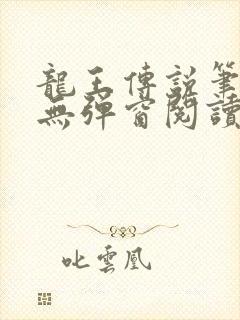 龍王傳說筆
無彈窗閱讀
叱雲凰